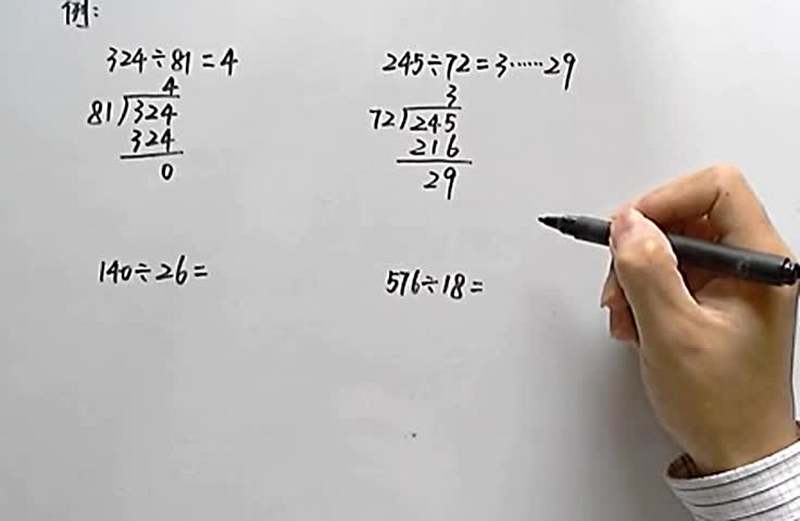 例:
324÷81=4
4
81)324
324
0
245÷72=3……29
3
72)245
216
29
140÷26=
576÷18=